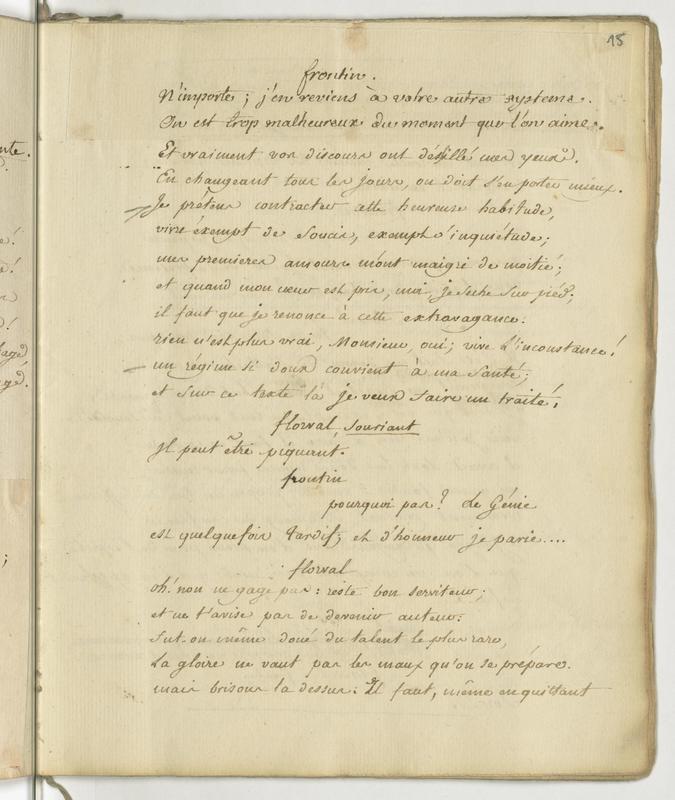 15
frontin.
N'importe ; j'en reviens à votre autre systeme.
On est trop malheureux du moment que l'on aime.
Et vraiment vos discours ont désillé mes yeux.
En changeant tous les jours, on doit s'en porter mieux.
Je prétens contracter cette heureuse habitude,
vivre exempt de soucis, exempt d'inquiétude ;
mes premieres amours m'ont maigri de moitié ;
et quand mon cœur est pris, moi, je seche sur pied ;
il faut que je renonce à cette extravagance.
rien n'est plus vrai, Monsieur, oui ; vive l'inconstance !
un régime si doux convient à ma santé ;
et sur ce texte là je veux faire un traité,
florval, souriant
Il peut être piquant.
frontin
pourquoi pas ? Le Génie
est quelquefois tardif ; et d'honneur je parie....
florval
oh ! non ne gage pas : reste bon serviteur ;
et ne t'avise pas de devenir auteur.
fut-on même doué du talent le plus rare,
La gloire ne vaut pas les maux qu'on se prépare.
mais brisons la dessus. Il faut, même en quittant
nte.